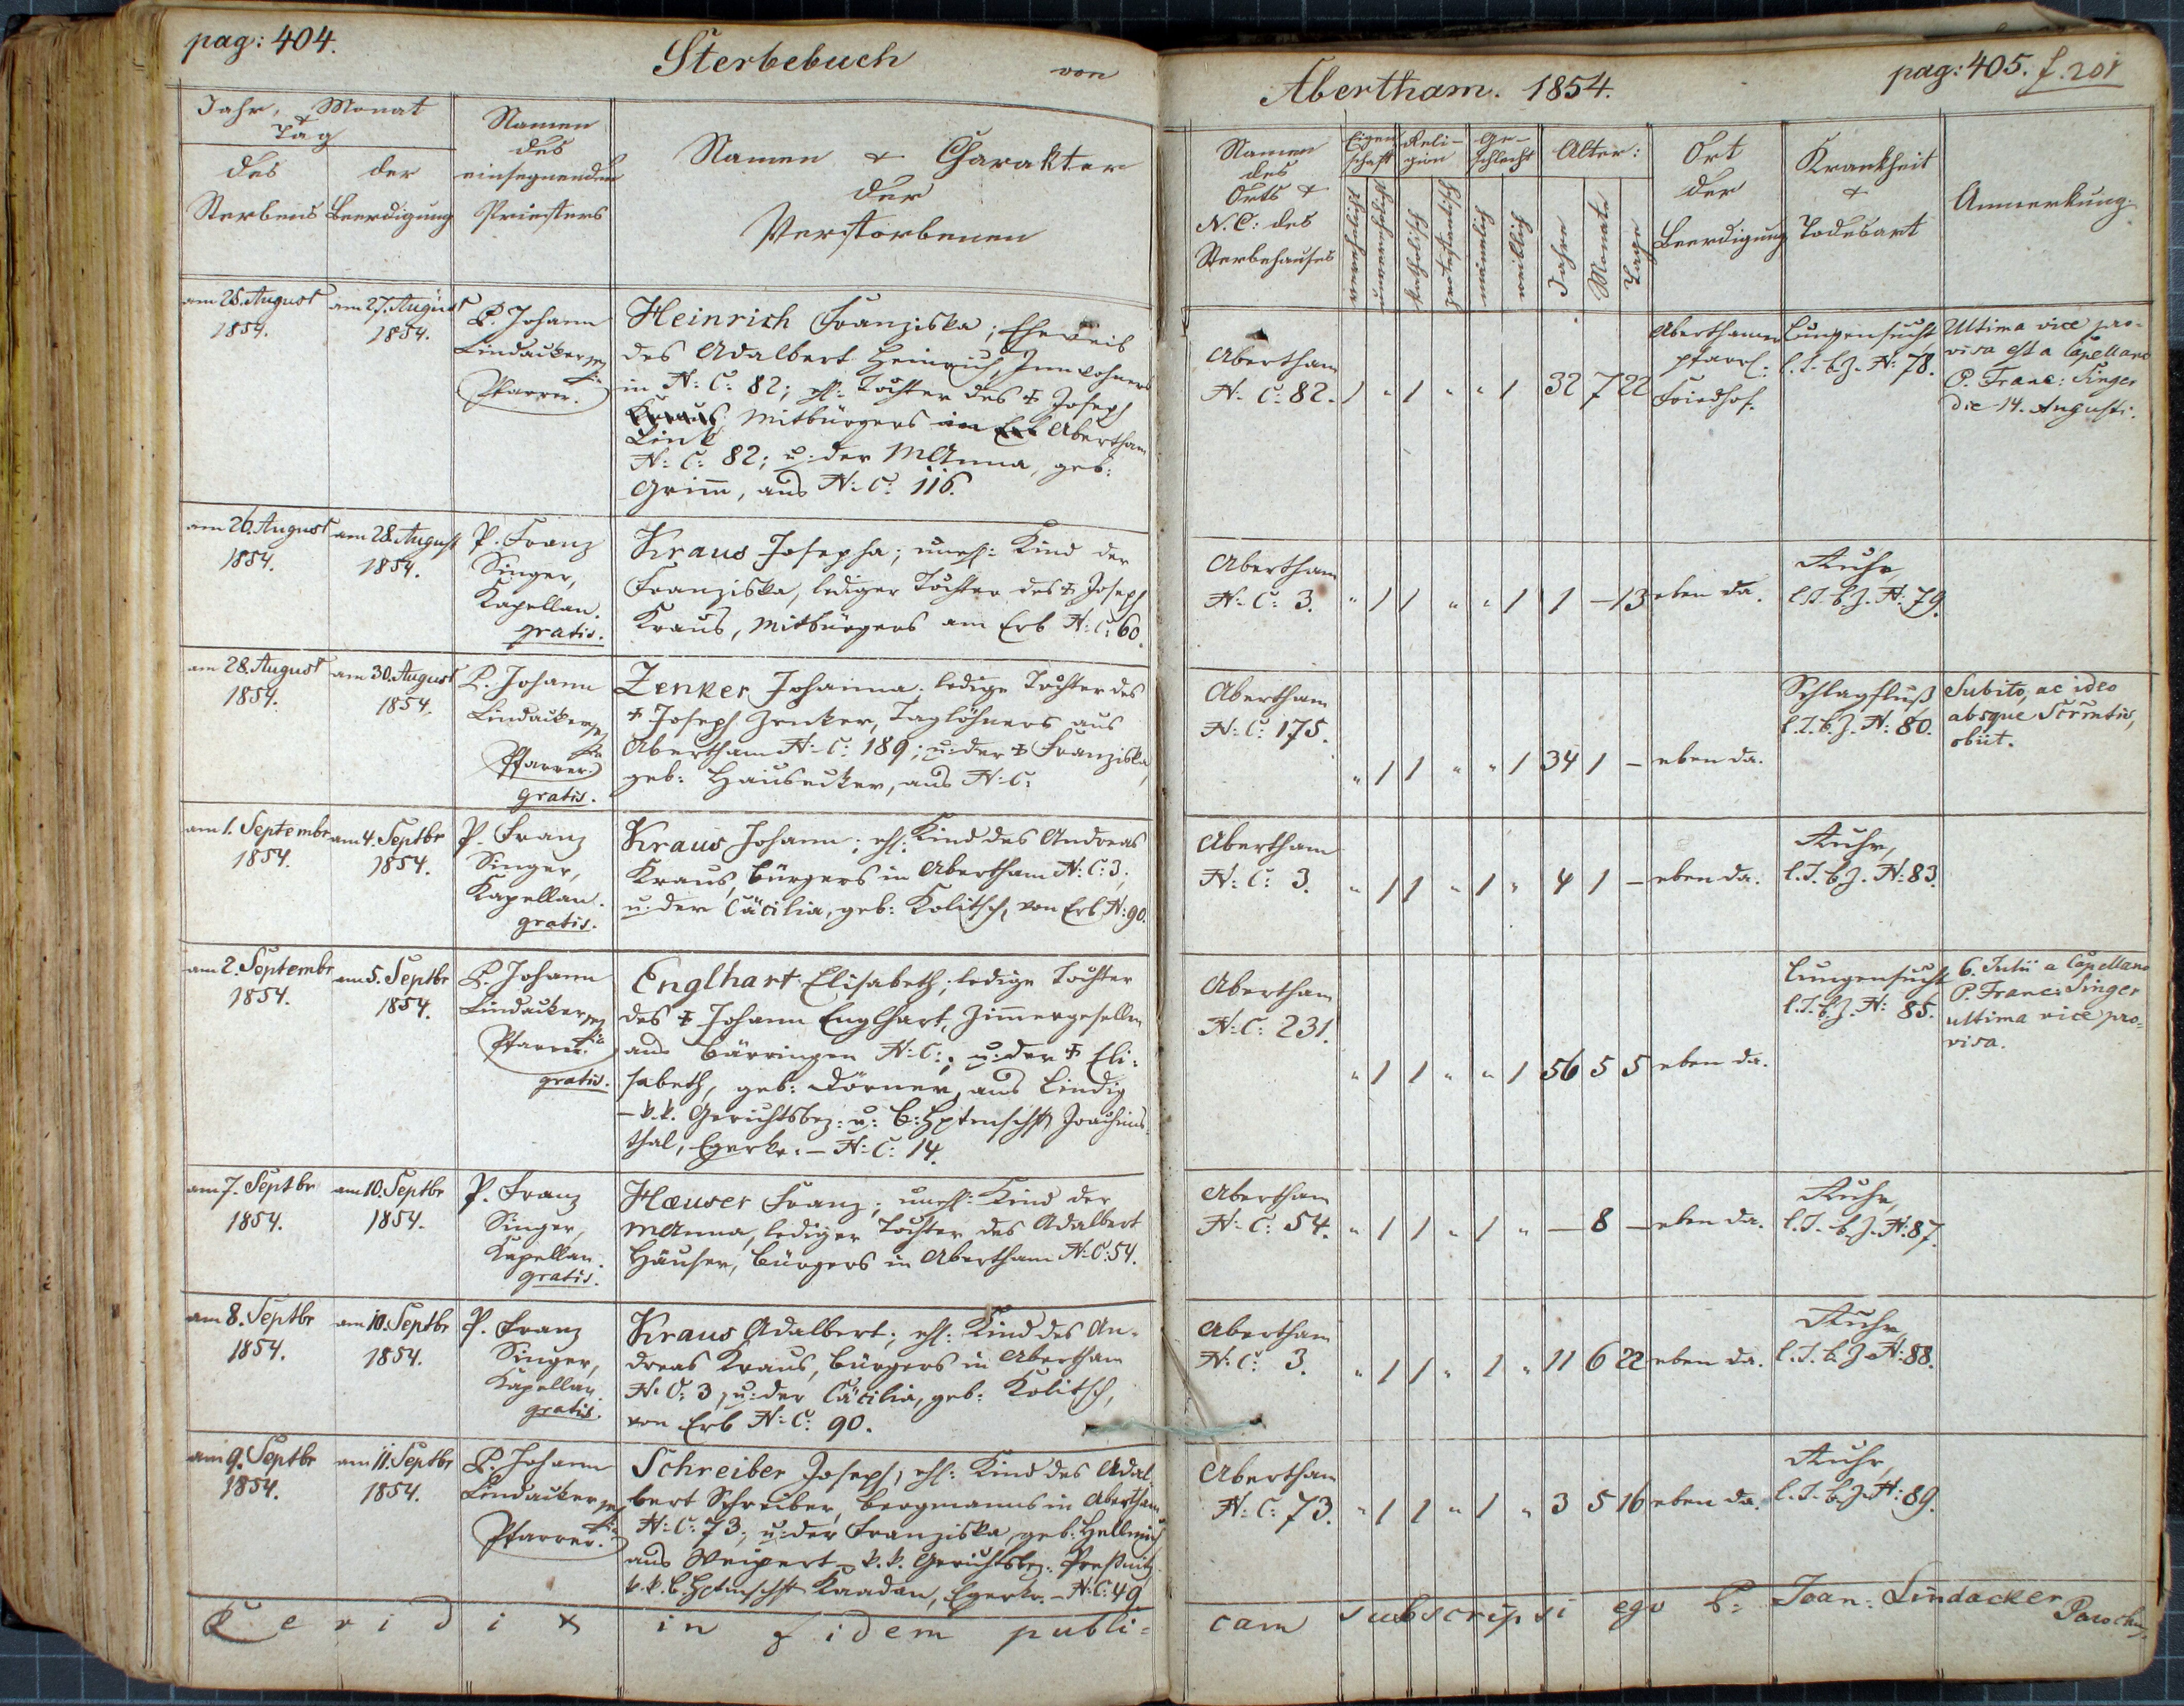 pag: 404.
Sterbebuch von
Jahr, Monat
&
Tag
des
Sterbens
der
Beerdigung
Namen
des
einsegnenden
Priesters
Namen & Charakter
der
Verstorbenen
am 25. August
1854.
am 27. August
1854.
P. Johann
Lindacker
Pfarrer.
Heinrich Franziska; Eheweib
des Adalbert Heinrich, Innwohners
in N: C: 82; ehl: Tochter des + Joseph
Kraus Mitbürgers in Erb Abertham
Link
N: C: 82; u: der MAnna, geb:
Grimm, aus N: C: 116.
am 26. August
1854.
am 28. August
1854.
P. Franz
Singer,
Kapellan.
gratis.
Kraus Josepha; unehl: Kind der
Franziska, lediger Tochter des + Joseph
Kraus, Mitbürgers am Erb N: C: 60.
am 28. August
1854.
am 30. August
1854.
P. Johann
Lindacker
Pfarrer.
gratis.
Zenker Johanna; ledige Tochter des
+ Joseph Zenker, Taglöhners aus
Abertham N: C: 189; u: der + Franziska,
geb: Hausecker, aus N: C:
am 1. Septembr
1854.
am 4. Septbr
1854.
P. Franz
Singer,
Kapellan.
gratis.
Kraus Johann; ehl: Kind des Andreas
Kraus, Bürgers in Abertham N: C: 3;
u: der Cäcilia, geb: Kolitsch, von Erb N: 90.
am 2. Septembr
1854.
am 5. Septbr
1854.
P. Johann
Lindacker
Pfarrer.
gratis.
Englhart Elisabeth; ledige Tochter
des + Johann Englhart, Zimmergesellen
aus Bärringen N: C:; u: der + Eli-
sabeth, geb: Dörner, aus Lindig
– k. k. Gerichtsbez: u: B: Hptmschft Joachims-
thal, Egerkr. – N: C: 14.
am 7. Septbr
1854.
am 10. Septbr
1854.
P. Franz
Singer,
Kapellan.
gratis.
Hæuser Franz; unehl: Kind der
MAnna, lediger Tochter des Adalbert
Häuser, Bürgers in Abertham N: C: 54.
am 8. Septbr
1854.
am 10. Septbr
1854.
P. Franz
Singer,
Kapellan.
gratis.
Kraus Adalbert; ehl: Kind des An-
dreas Kraus, Bürgers in Abertham
N: C: 3, u: der Cäcilia, geb: Kolitsch,
von Erb N: C: 90.
am 9. Septbr
1854.
am 11. Septbr
1854.
P. Johann
Lindacker
Pfarrer.
Schreiber Joseph; ehl: Kind des Adal-
bert Schreiber, Bergmanns in Abertham
N: C: 73; u: der Franziska, geb: Hellmich
aus Weipert – k. k. Gerichtsbez: Preßnitz
k. k. B. Hptmschft Kaadan, Egerkr. – N: C: 49
in fidem publi=
Abertham. 1854.
pag: 405. f. 201
Namen
des
Orts &
N. C: des
Sterbehauses
Eigen
schaft
verehelicht
unverehelicht
Reli-
gion
katholisch
protestantisch
Ge-
schlecht
männlich
weiblich
Alter:
Jahre
Monate
Tage
Ort
der
Beerdigung
Krankheit
&
Todesart
Anmerkung
Abertham
N: C: 82. 1 " 1 " " 1 32 7 22
Aberthamer
pfarrl:
Friedhof.
Lungensucht,
l. T. b. Z. N: 78.
Ultima vice pro-
visa est a Capellano
P. Franc: Singer
die 14. Augusti.
Abertham
N: C: 3. " 1 1 " " 1 1 – 13 eben da.
Ruhr,
l. T. b. Z. N: 79.
Abertham
N: C: 175. " 1 1 " " 1 34 1 – eben da.
Schlagfluß,
l. T. b. Z. N: 80.
Subito, ac ideo
absque Scrmtis,
obiit.
Abertham
N: C: 3. " 1 1 " 1 " 4 1 – eben da.
Ruhr,
l. T. b. Z. N: 83.
Abertham
N: C: 231. " 1 1 " " 1 56 5 5 eben da.
Lungensucht
l. T. b. Z. N: 85.
6. Julii a Capellano
P. Franc: Singer
ultima vice pro=
visa.
Abertham
N: C: 54. " 1 1 " 1 " – 8 – eben da.
Ruhr,
l. T. b. Z. N: 87.
Abertham
N: C: 3. " 1 1 " 1 " 11 6 22 eben da.
Ruhr,
l. T. b. Z. N: 88.
Abertham
N: C: 73. " 1 1 " 1 " 3 5 16 eben da.
Ruhr,
l. T. b. Z. N: 89.
cam subscripsi ego P: Joan: Lindacker Parochus.